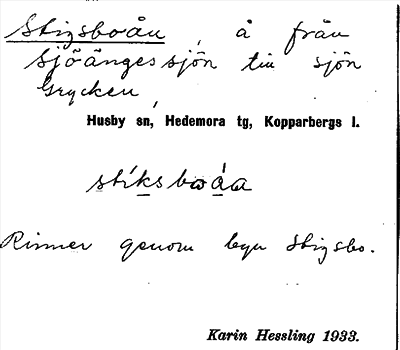 Stigsboån, å från
Sjöängessjön till sjön
Grycken
Husby sn, Hedemora tg, Kopparbergs l.
stíksbωáa
Rinner genom byn Stigsbo.
Karin Hessling 1933.